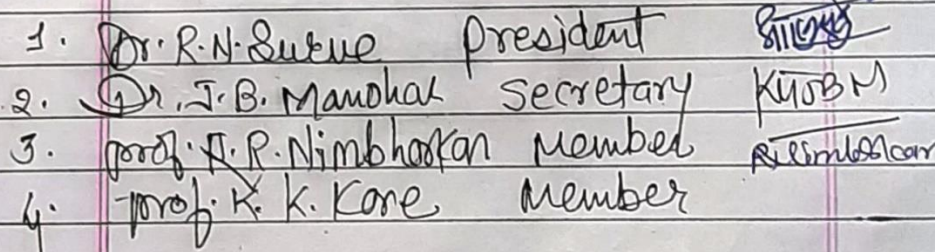 1. Dr. R.N. Surve President
2. Dr. J.B. Manohar Secretary
3. Prof. A.R. Nimbhorkar Member
4. Prof. K. K. Kore Member